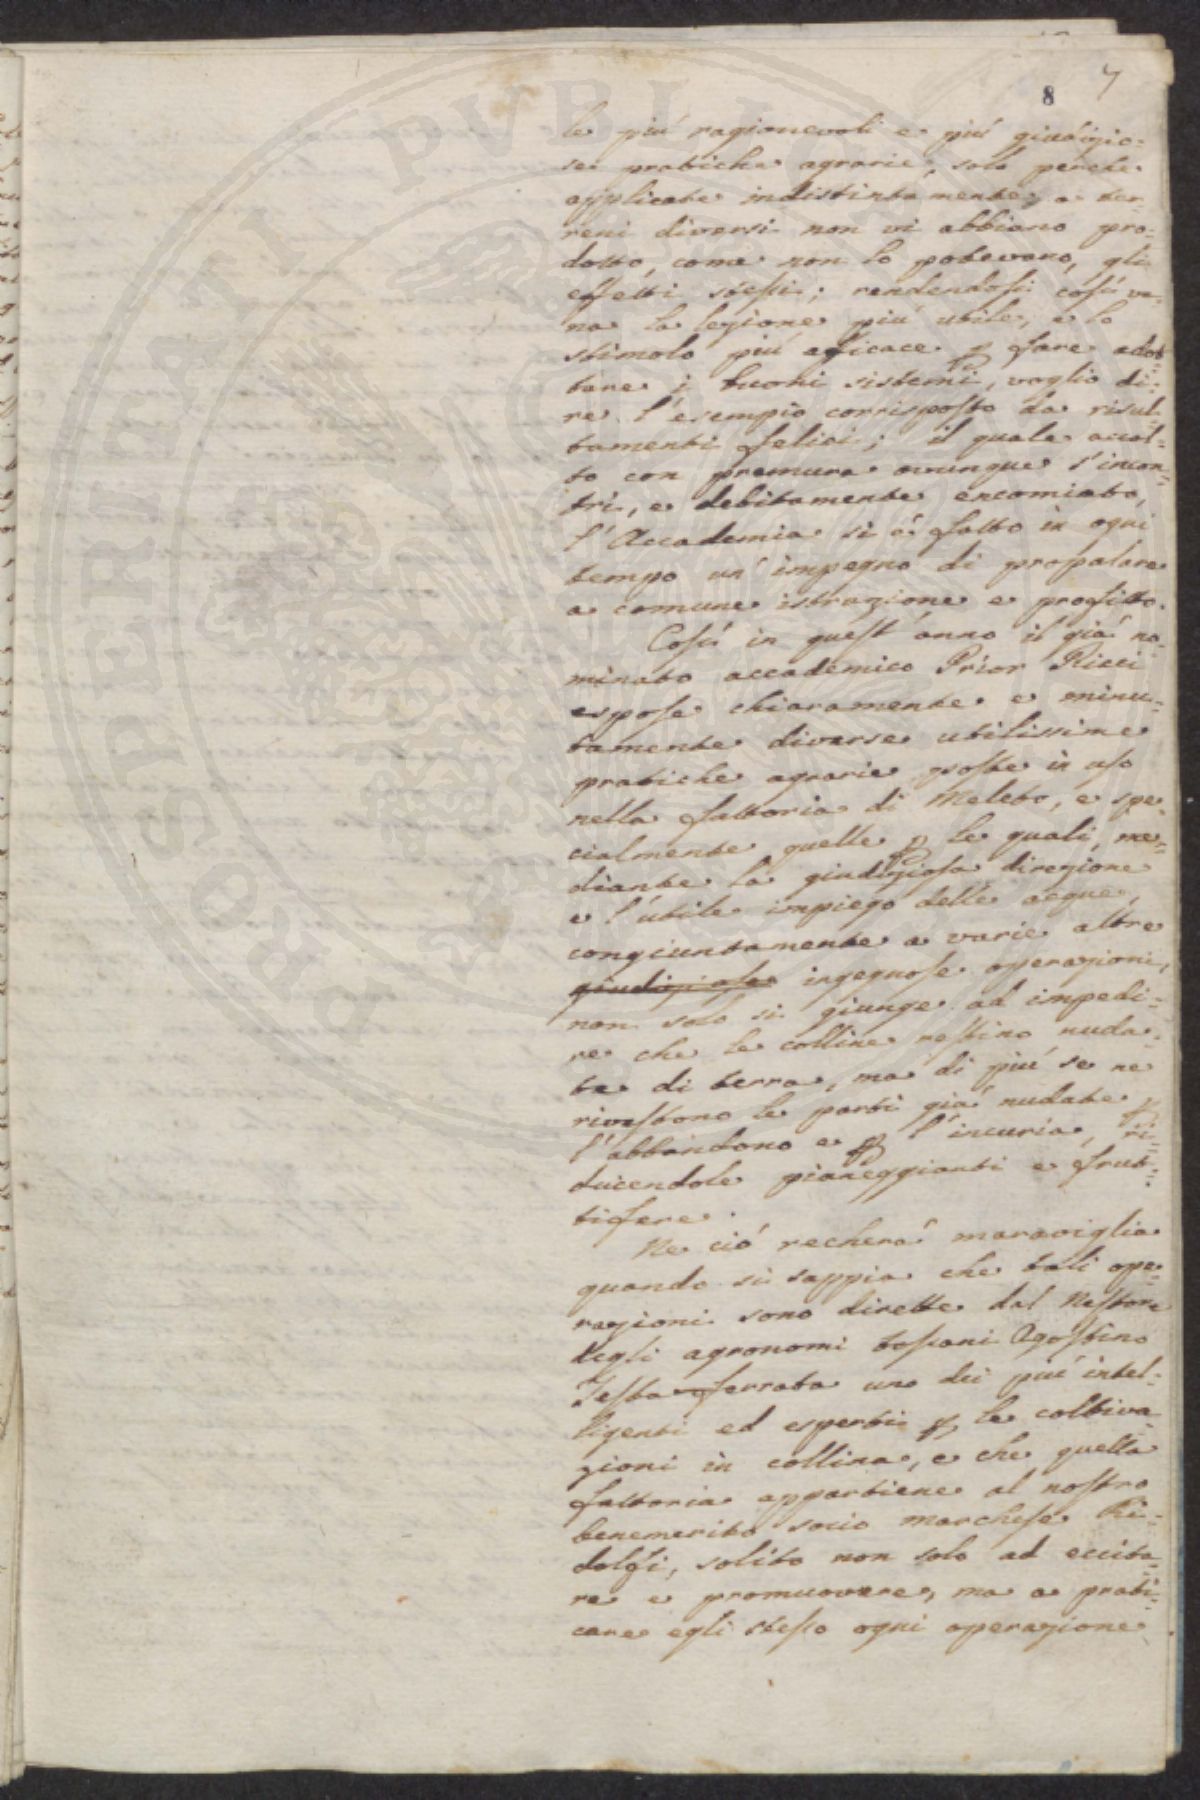 7
8
le più ragionevoli e più giudizio-
se pratiche agrarie, solo perchè
applicate indistintamente a ter-
reni diversi non vi abbiano pro-
dotto, come non lo potevano, gli
effetti stessi; rendendosi così va-
na la lezione più utile, e lo
stimolo più efficace p fare adot-
tare i buoni sistemi, voglio di-
re l'esempio corrisposto da risul-
tamenti felici; il quale accol-
to con premura ovunque s'incon-
tri, e debitamente encomiato,
l'Accademia si è fatto in ogni
tempo un' impegno di propalare
a comune istruzione e profitto.
Così in quest'anno il già no-
minato accademico Prior Ricci
espose chiaramente e minu-
tamente diverse utilissime
pratiche agrarie poste in uso
nella fattoria di Meleto, e spe-
cialmente quelle p le quali, me-
diante la giudiziosa direzione
e l'utile impiego delle acque,
congiuntamente a varie altre
giudiziose ingegnose operazioni,
non solo si giunge ad impedi-
re che le colline restino nuda-
te di terra, ma di più se ne
rivestono le parti già nudate p
l'abbandono e p l'incuria, ri-
ducendole pianeggianti e frut-
tifere.
Ne ciò recherà maraviglia
quando si sappia che tali ope-
razioni sono dirette dal Nestore
degli agronomi toscani Agostino
Testaferrata uno dei più intel-
ligenti ed esperti p le coltiva-
zioni in collina, e che quella
fattoria appartiene al nostro
benemerito socio marchese Ri-
dolfi, solito non solo ad eccita-
re e promuovere, ma a prati-
care egli stesso ogni operazione
PROSPERITATI PVBLICAE